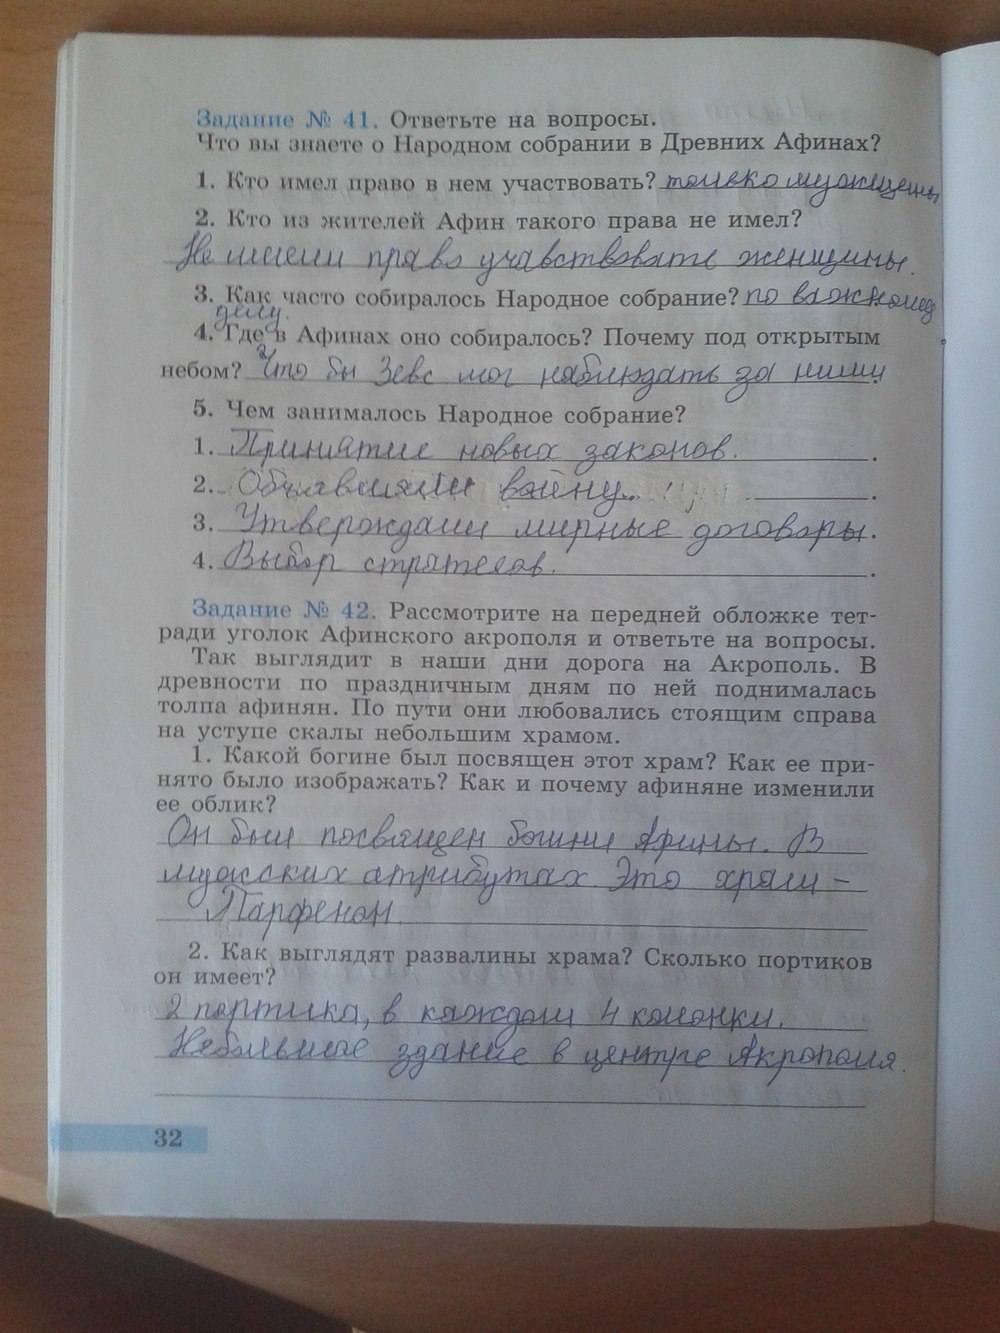 Задание № 41. Ответьте на вопросы.
Что вы знаете о Народном собрании в Древних Афинах?
1. Кто имел право в нем участвовать? только мужщены
2. Кто из жителей Афин такого права не имел?
Не имели право учавствовать женщины.
3. Как часто собиралось Народное собрание? по важному
делу.
4. Где в Афинах оно собиралось? Почему под открытым
небом? Что бы Зевс мог наблюдать за ними.
5. Чем занималось Народное собрание?
1. Принятие новых законов.
2. Объявляли войну.
3. Утверждали мирные договоры.
4. Выбор стратегов.
Задание № 42. Рассмотрите на передней обложке тет-
ради уголок Афинского акрополя и ответьте на вопросы.
Так выглядит в наши дни дорога на Акрополь. В
древности по праздничным дням по ней поднималась
толпа афинян. По пути они любовались стоящим справа
на уступе скалы небольшим храмом.
1. Какой богине был посвящен этот храм? Как ее при-
нято было изображать? Как и почему афиняне изменили
ее облик?
Он был посвящен богини Афины. В
мужских атрибутах. Это храм –
Парфенон.
2. Как выглядят развалины храма? Сколько портиков
он имеет?
2 портика, в каждом 4 колонки.
Небольшое здание в центре Акрополя.
32